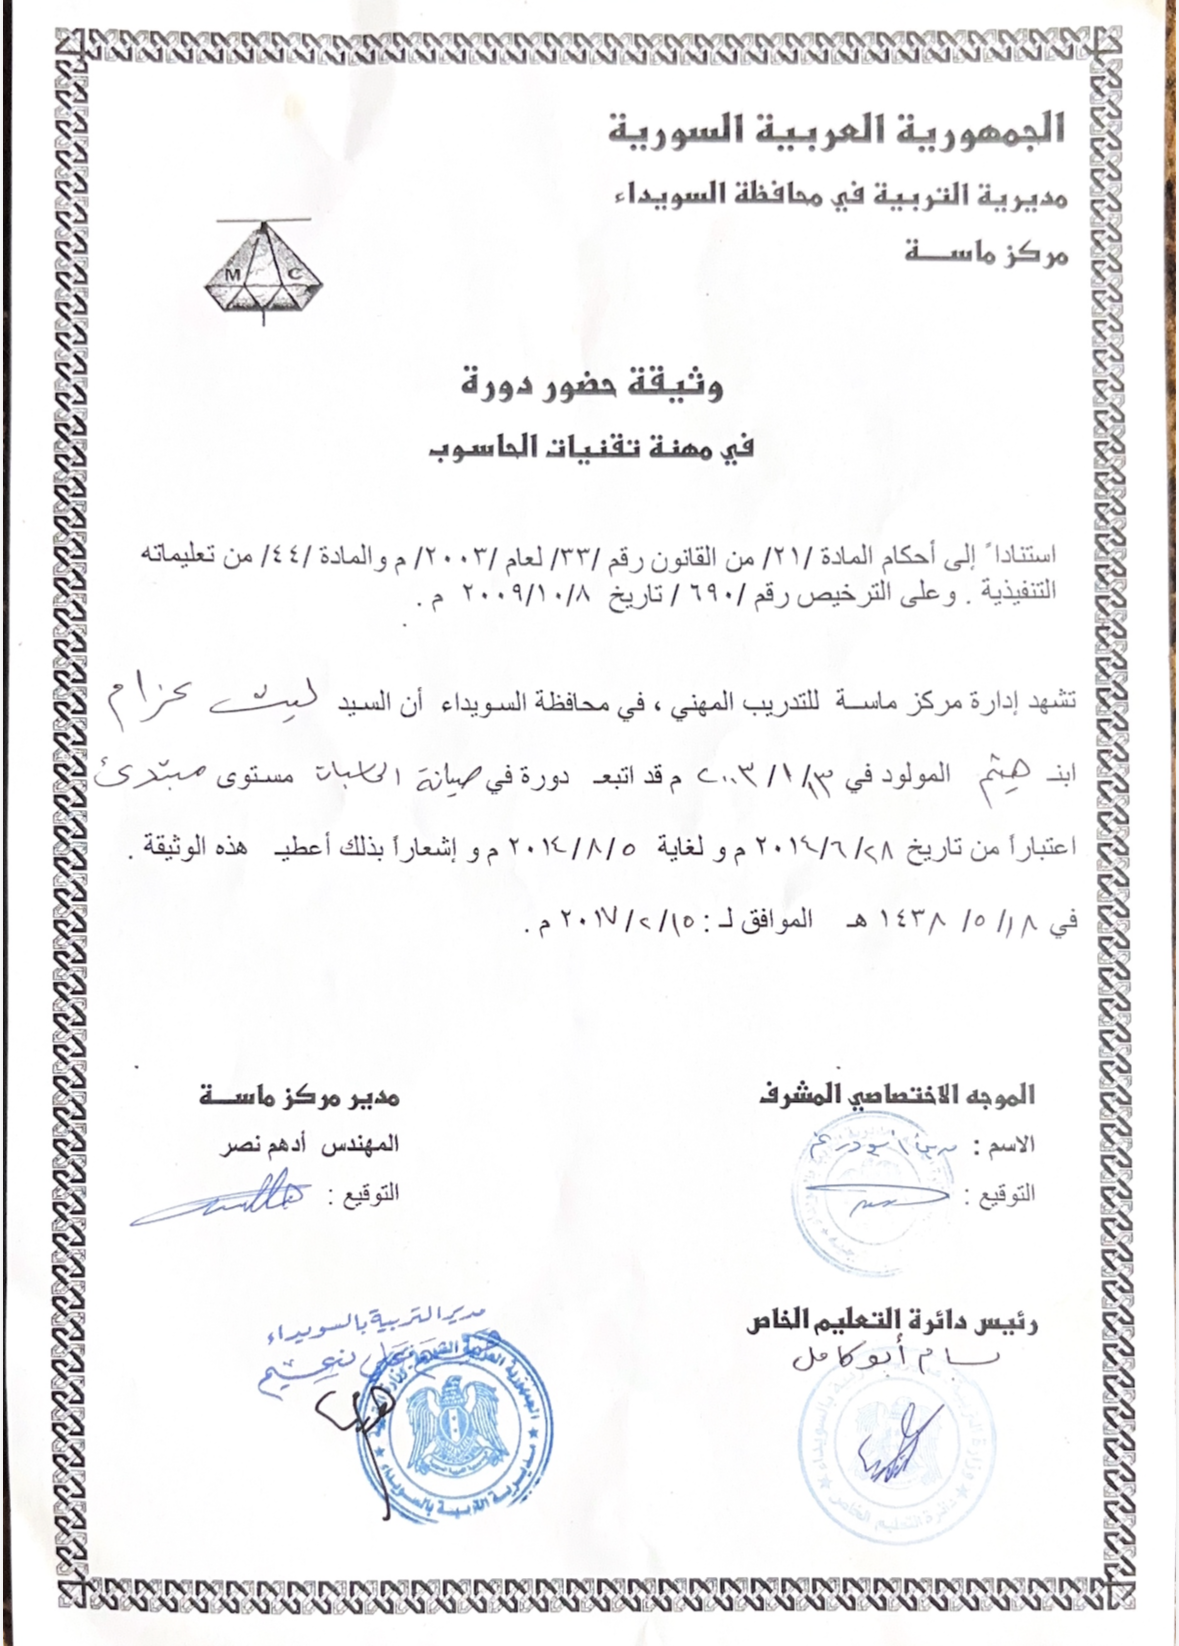 الجمهورية العربية السورية
مديرية التربية في محافظة السويداء
مركز ماســة
M C
وثيقة حضور دورة
في مهنة تقنيات الحاسوب
استناداً إلى أحكام المادة /٢١/ من القانون رقم /٣٣/ لعام /٢٠٠٣/ م والمادة /٤٤/ من تعليماته
التنفيذية . وعلى الترخيص رقم /٦٩٠/ تاريخ ٢٠٠٩/١٠/٨ م .
تشهد إدارة مركز ماســة للتدريب المهني ، في محافظة السويداء أن السيد ليث عزام
ابنـ هيثم المولود في ١٣/ ١/ ٢٠٠٣ م قد اتبعـ دورة في صيانة الحاسبات مستوى مبتدئ
اعتباراً من تاريخ ٢٨/ ٦/ ٢٠١٤ م و لغاية ٥/ ٨/ ٢٠١٤ م و إشعاراً بذلك أعطيـ هذه الوثيقة .
في ١٨/ ٥/ ١٤٣٨ هـ الموافق لـ : ١٥/ ٢/ ٢٠١٧ م .
الموجه الاختصاصي المشرف
الاسم :
التوقيع :
مدير مركز ماســة
المهندس أدهم نصر
التوقيع :
رئيس دائرة التعليم الخاص
بسام أبو كامل
وزارة التربية
دائرة التعليم الخاص
مدير التربية بالسويداء
مديرية التربية بالسويداء